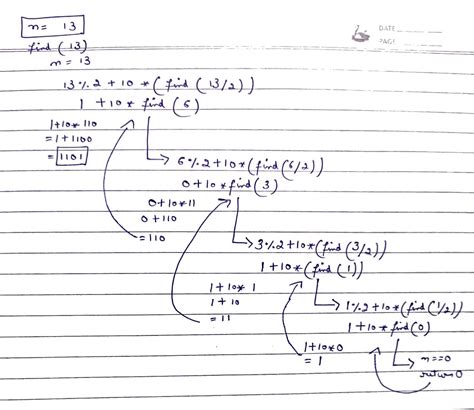 n = 13
DATE
PAGE
find (13)
n = 13
13 % 2 + 10 * (find (13/2))
1 + 10 * find (6)
1+10* 110
= 1 + 1100
= 1101
6 % 2 + 10 * (find (6/2))
0 + 10 * find (3)
0+10*11
0 + 110
= 110
3 % 2 + 10 * (find (3/2))
1 + 10 * (find (1))
1 + 10 * 1
1 + 10
= 11
1 % 2 + 10 * (find (1/2))
1 + 10 * find (0)
1+10*0
= 1
n==0
return 0